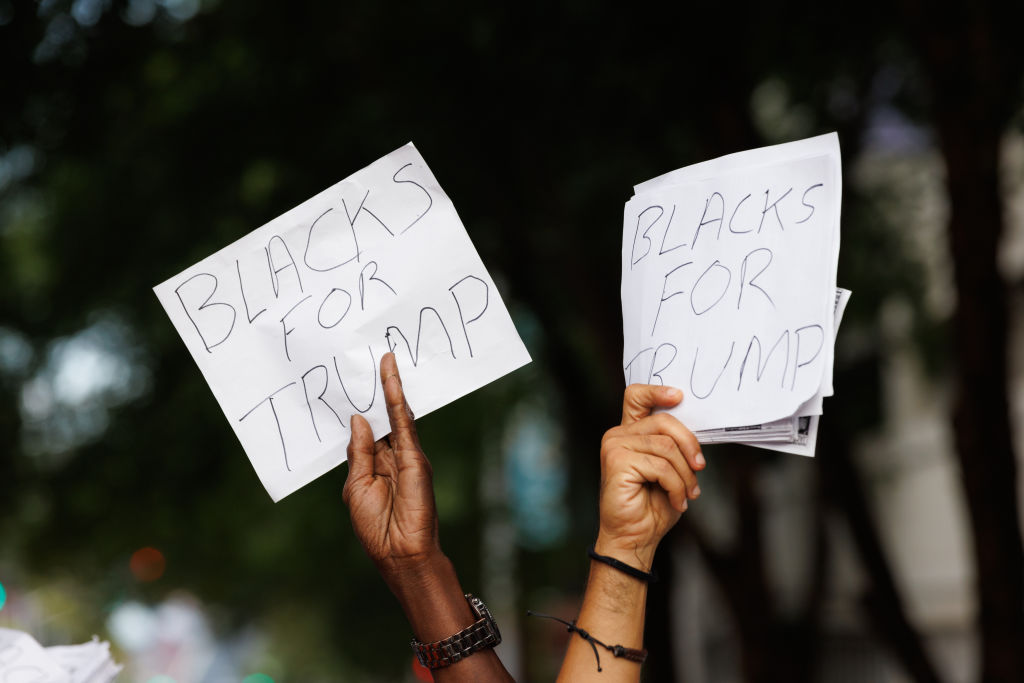 BLACKS
FOR
TRUMP
BLACKS
FOR
TRUMP